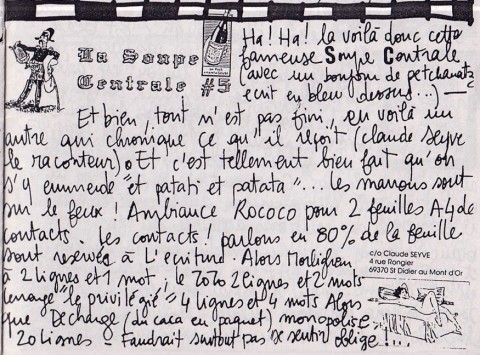 La Soupe
Centrale #5
Ha! Ha! la voilà donc cette
fameuse Soupe Centrale
(avec un bonjour de
ecrit en bleu dessus...) —
Et bien, tout n'est pas fini, en voilà un
autre qui chronique ce qu'il reçoit (claude Seyve
le raconteur). Et c'est tellement bien fait qu'on
s'y emmerde "et patati et patata"... les marrons sont
sur le feux! Ambiance Rococo pour 2 feuilles A4 de
contacts. Les contacts! parlons en 80% de la feuille
sont reservée à l'ecriture. Alors
à 2 lignes et 1 mot, le ZoZo 2 lignes et 2 mots
"le privilégié" 4 lignes et 4 mots Alors
que Déchange (du caca en paquet) monopolise
20 lignes — Faudrait surtout pas se sentir obligé!...
c/o Claude SEYVE
4 rue Rongier
69370 St Didier au Mont d'Or